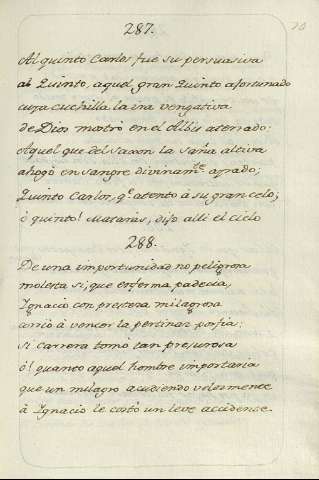 287.
Al quinto Carlos fue su persuasiva
al Quinto, aquel gran Quinto afortunado
cuya cuchilla la ira vengativa
de Dios mostró en el Albis aterrado:
Aquel que del Saxon la saña altiva
ahogó en sangre divinam.te ayrado;
Quinto Carlos, q.e atento à su gran celo;
ò quinto! Matanis, dijo alli el cielo
288.
De una importunidad no peligrosa
molesta si, que enferma padecia,
Ignacio con presteza milagrosa
corrió à vencer la pertinaz porfia:
Si Carrera tomó tan presurosa
ò! quanto aquel hombre importaria
que un milagro acudiendo velosmente
à Ignacio le costó un leve accidente.